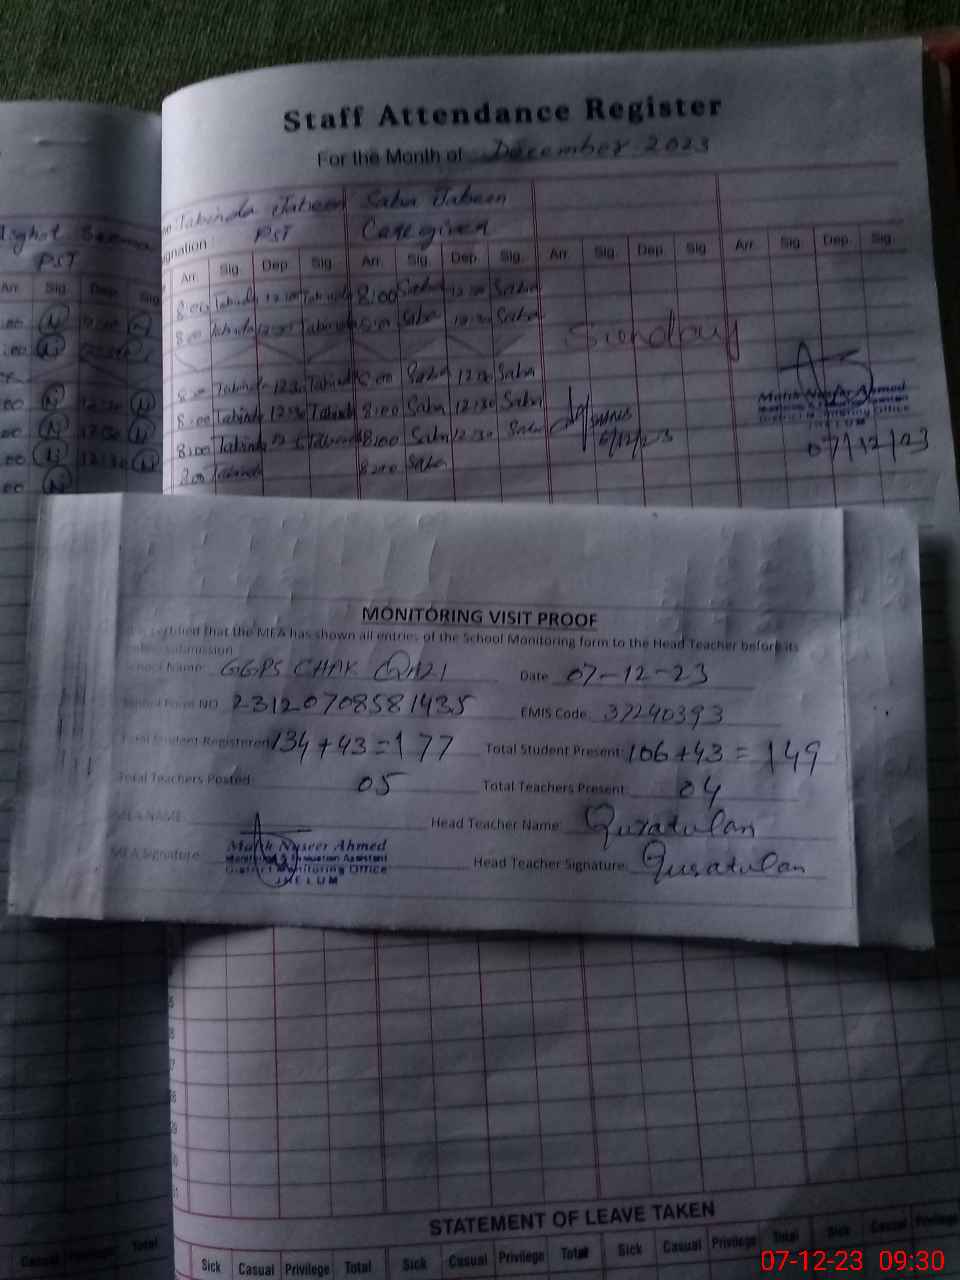 Staff Attendance Register
For the Month of December 2023
Tabinda Jabeen Saba Jabeen
Seema
PST
gnation: PST Caregiver
Arr. Sig. Dep. Sig. Arr. Sig. Dep. Sig. Arr. Sig. Dep. Sig. Arr. Sig. Dep. Sig.
Arr. Sig. Dep. Sig.
8:00 Tabinda Tabinda 8:00 Saba Saba
8:00 Tabinda Tabinda 8:00 Saba Saba
Sunday
8:00 Tabinda 12:30 Tabinda 8:00 Saba 12:30 Saba
8:00 Tabinda 12:30 Tabinda 8:00 Saba 12:30 Saba
8:00 Tabinda Tabinda 8:00 Saba 12:30 Saba
8:00 Tabinda 8:00 Saba
6/12/23
Malik Naseer Ahmed
Monitoring & Evaluation Assistant
District Monitoring Office
JHELUM
07/12/23
MONITORING VISIT PROOF
certified that the MEA has shown all entries of the School Monitoring form to the Head Teacher before its
submission
School Name: GGPS CHAK Date 07-12-23
School Form NO 23120708581435 EMIS Code 37240393
Total Student Registered 134+43=177 Total Student Present: 106+43=149
Total Teachers Posted: 05 Total Teachers Present: 04
MEA NAME: Head Teacher Name: Quratulan
MEA Signature Head Teacher Signature: Quratulan
Malik Naseer Ahmed
Monitoring & Evaluation Assistant
District Monitoring Office
JHELUM
STATEMENT OF LEAVE TAKEN
Casual Privilege Total Sick Casual Privilege Total Sick Casual Privilege Total Sick Casual Privilege Total Sick Casual Privilege
07-12-23 09:30